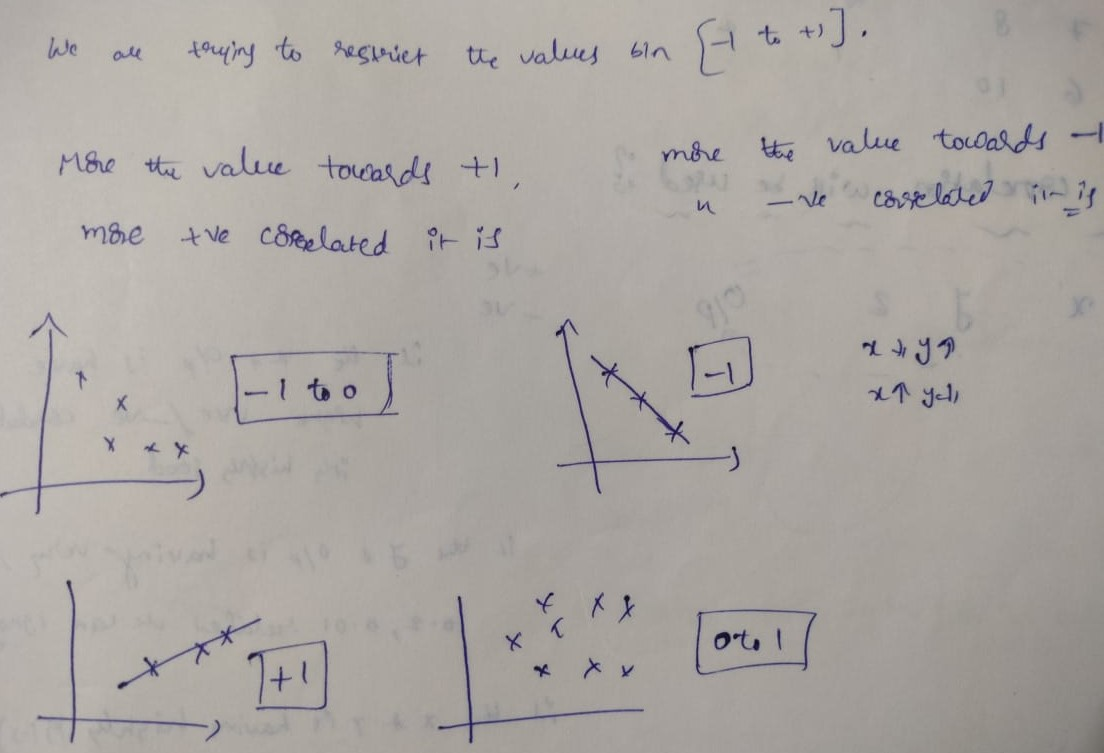 We are trying to restrict the values b/n [-1 to +1].
More the value towards +1,
more +ve correlated it is
more the value towards -1
" -ve correlated it is
-1 to 0
-1
x ↓ y ↑
x ↑ y ↓
+1
0 to 1